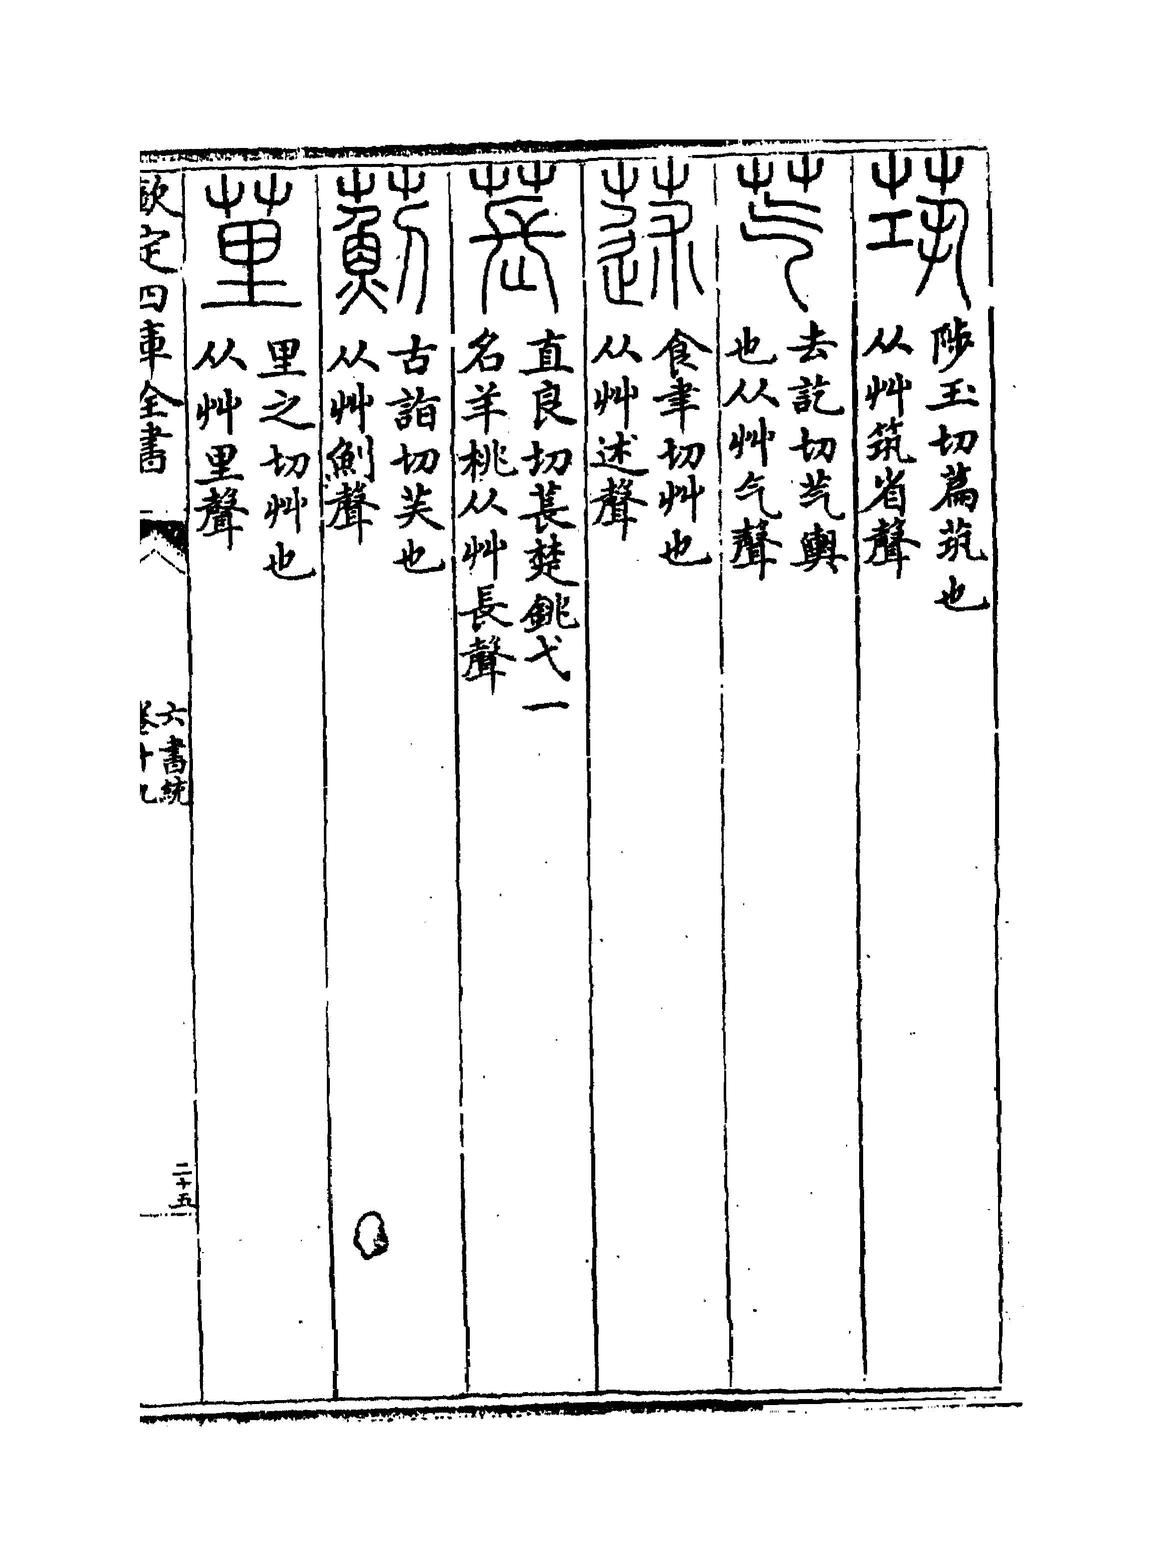 茿
陟玉切萹茿也
从艸筑省聲
芞
去訖切芞輿
也从艸气聲
蒁
食聿切艸也
从艸述聲
萇
直良切萇楚銚弋一
名羊桃从艸長聲
薊
古詣切芙也
从艸魝聲
荲
里之切艸也
从艸里聲
欽定四庫全書
六書統
卷十九
二十五